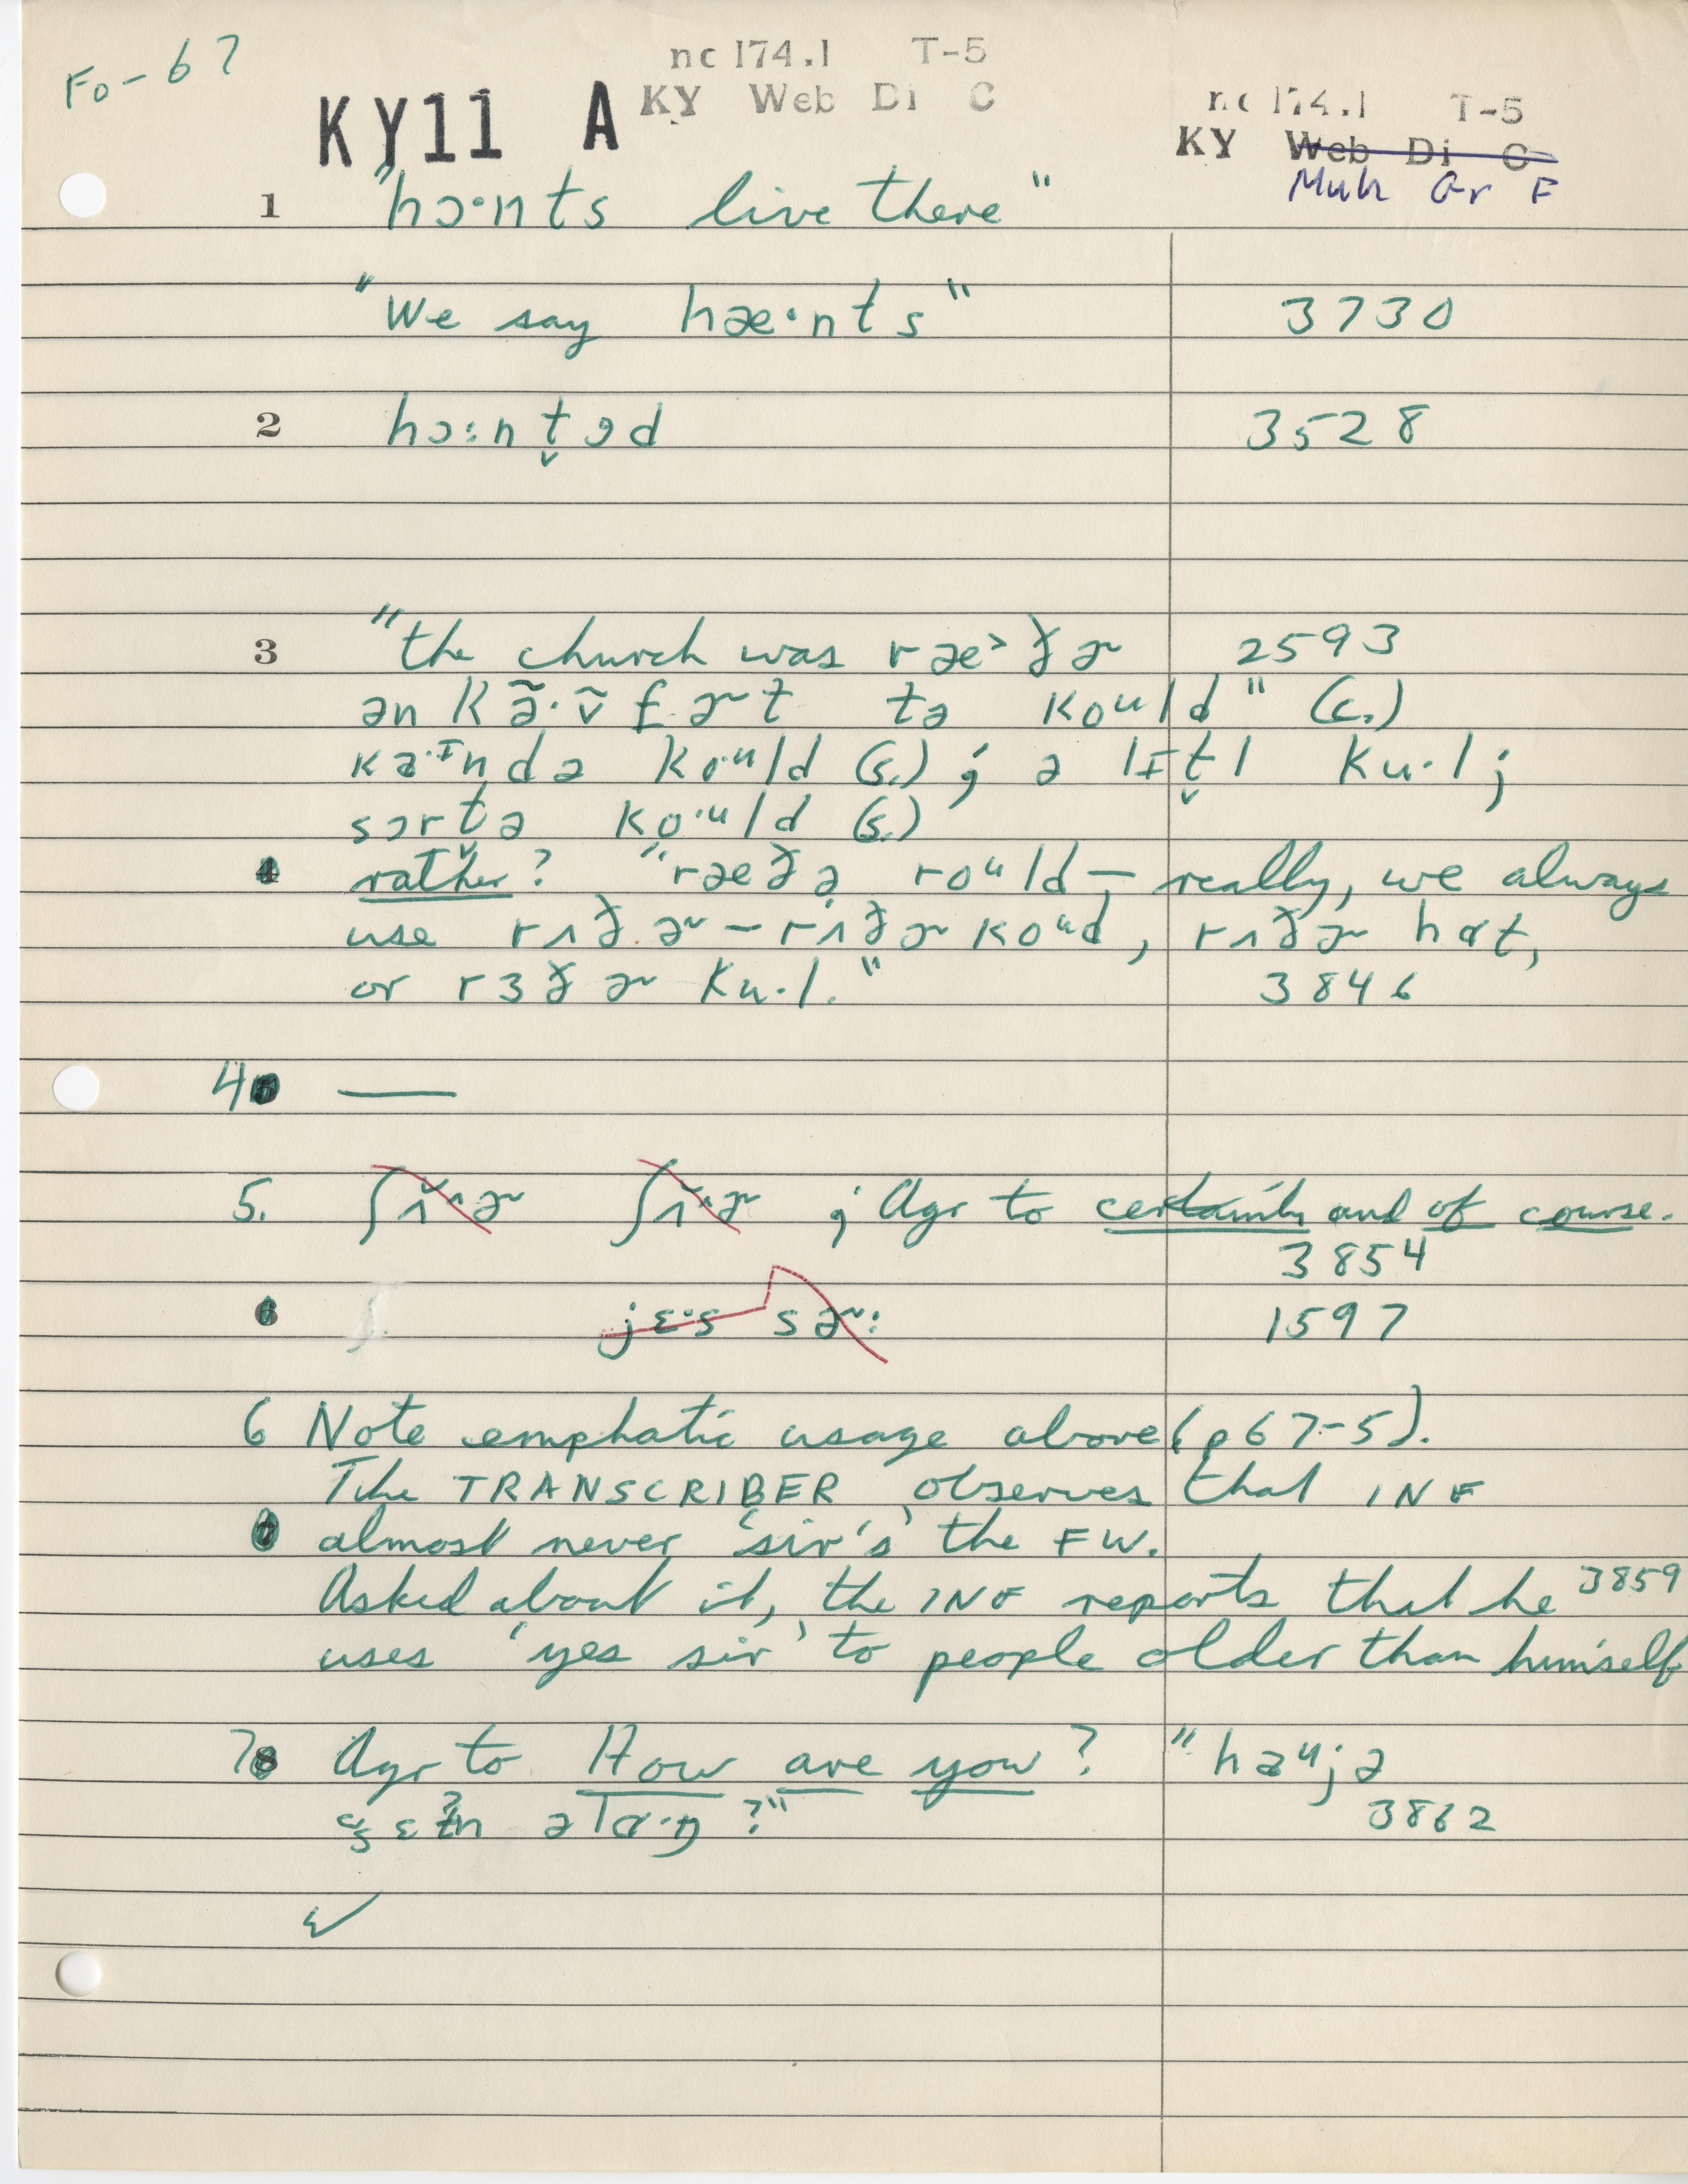 Fo-67
nc 174.1 T-5
KY11 A KY Web Di C
nc 174.1 T-5
KY Web Di C
Muh Gr F
1 "hɔ·nts live there"
"We say hæ·nts" 3730
2 hɔ:nt̬əd 3528
3 "the church was ræ˃ðɚ 2593
ənkə̃·ṽfɚt tə koᵘld" (c.)
kaˑɪndə ko·ᵘld (s.); ə lɪt̬l ku·l;
sɔrt̬ə ko·ᵘld (s.)
4 rather? "ræðə roᵘld – really, we always
use rʌðɚ – rʌðɚ koᵘd, rʌðɚ hɑt,
or rɜðɚ ku·l." 3846
4 —
5. ʃɚ ʃɚ ; Agr to certainly and of course.
3854
6 jɛ·s sɚ: 1597
6 Note emphatic usage above (p 67-5).
The TRANSCRIBER observes that INF
7 almost never 'sir's' the FW.
Asked about it, the INF reports that he 3859
uses 'yes sir' to people older than himself
78 Agr to How are you? "haᵘjə
3862
əlɑ·ŋ?"